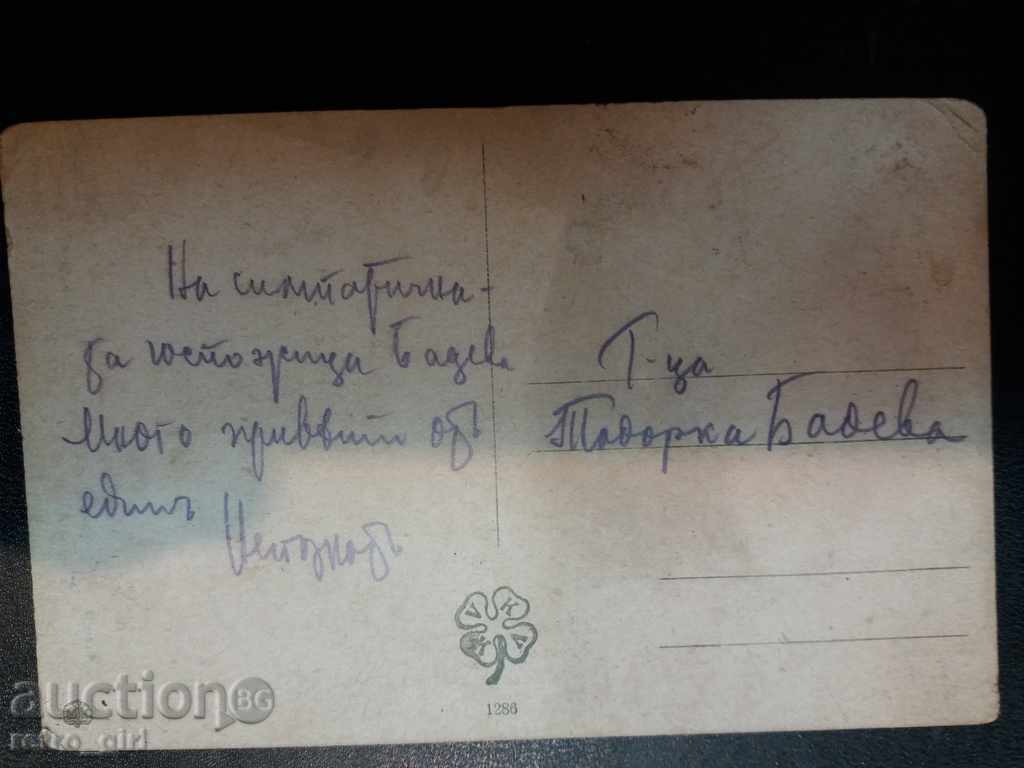 На симпатична-
та госпожица Бадева
Много приввѣти отъ
единъ
Непознатъ
Г-ца
Тодорка Бадева
V K K A
1286
auction BG
retro_girl